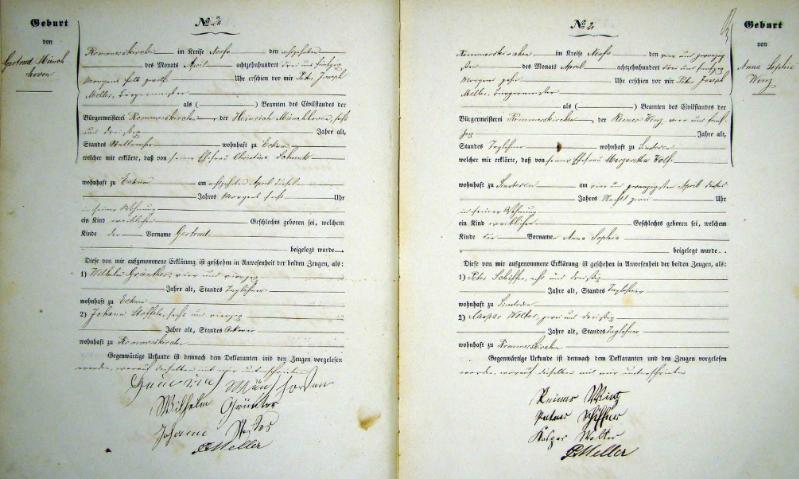 Geburt
von
Gertrud Münch
hoven
No. 2
Rommerskirchen im Kreise Neuß den achtzehnten
des Monats April achtzehnhundert
Morgens Uhr erschien vor mir Peter Joseph
Meller, Bürgermeister
als ( ) Beamten des Civilstandes der
Bürgermeisterei Rommerskirchen der Heinrich Münchhoven, sechs
und dreißig Jahre alt,
Standes wohnhaft zu Eckum
welcher mir erklärte, daß von seiner Ehefrau Christina
wohnhaft zu Eckum am achtzehnten April dieses
Jahres Morgens sechs Uhr
in seiner Wohnung
ein Kind weiblichen Geschlechts geboren sei, welchem
Kinde der Vorname Gertrud
beigelegt wurde.
Diese von mir aufgenommene Erklärung ist geschehen in Anwesenheit der beiden Zeugen, als:
1) Wilhelm vier und vierzig
Jahre alt, Standes Taglöhner
wohnhaft zu Eckum
2) Johann sechs und vierzig
Jahre alt, Standes Ackerer
wohnhaft zu Rommerskirchen
Gegenwärtige Urkunde ist demnach dem Deklaranten und den Zeugen vorgelesen
worden, worauf dieselben mit mir unterschrieben
Münchhoven
Wilhelm
Johann
Meller
Geburt
von
Anna Sophia
Winz
No. 3.
Rommerskirchen im Kreise Neuß den vier und zwanzig
sten des Monats April achtzehnhundert
Morgens zehn Uhr erschien vor mir Peter Joseph
Meller, Bürgermeister
als ( ) Beamten des Civilstandes der
Bürgermeisterei Rommerskirchen der Reiner Winz vier und
zig Jahre alt,
Standes Taglöhner wohnhaft zu
welcher mir erklärte, daß von seiner Ehefrau Margaretha
wohnhaft zu am vier und zwanzigsten April dieses
Jahres Nachts Uhr
in seiner Wohnung
ein Kind weiblichen Geschlechts geboren sei, welchem
Kinde die Vorname Anna Sophia
beigelegt wurde.
Diese von mir aufgenommene Erklärung ist geschehen in Anwesenheit der beiden Zeugen, als:
1) Peter Schiffer, acht und dreißig
Jahre alt, Standes Taglöhner
wohnhaft zu
2) Kaspar Wolter, zwei und dreißig
Jahre alt, Standes Taglöhner
wohnhaft zu Rommerskirchen
Gegenwärtige Urkunde ist demnach dem Deklaranten und den Zeugen vorgelesen
worden, worauf dieselben mit mir unterschrieben
Reiner Winz
Peter Schiffer
Kaspar Wolter
Meller